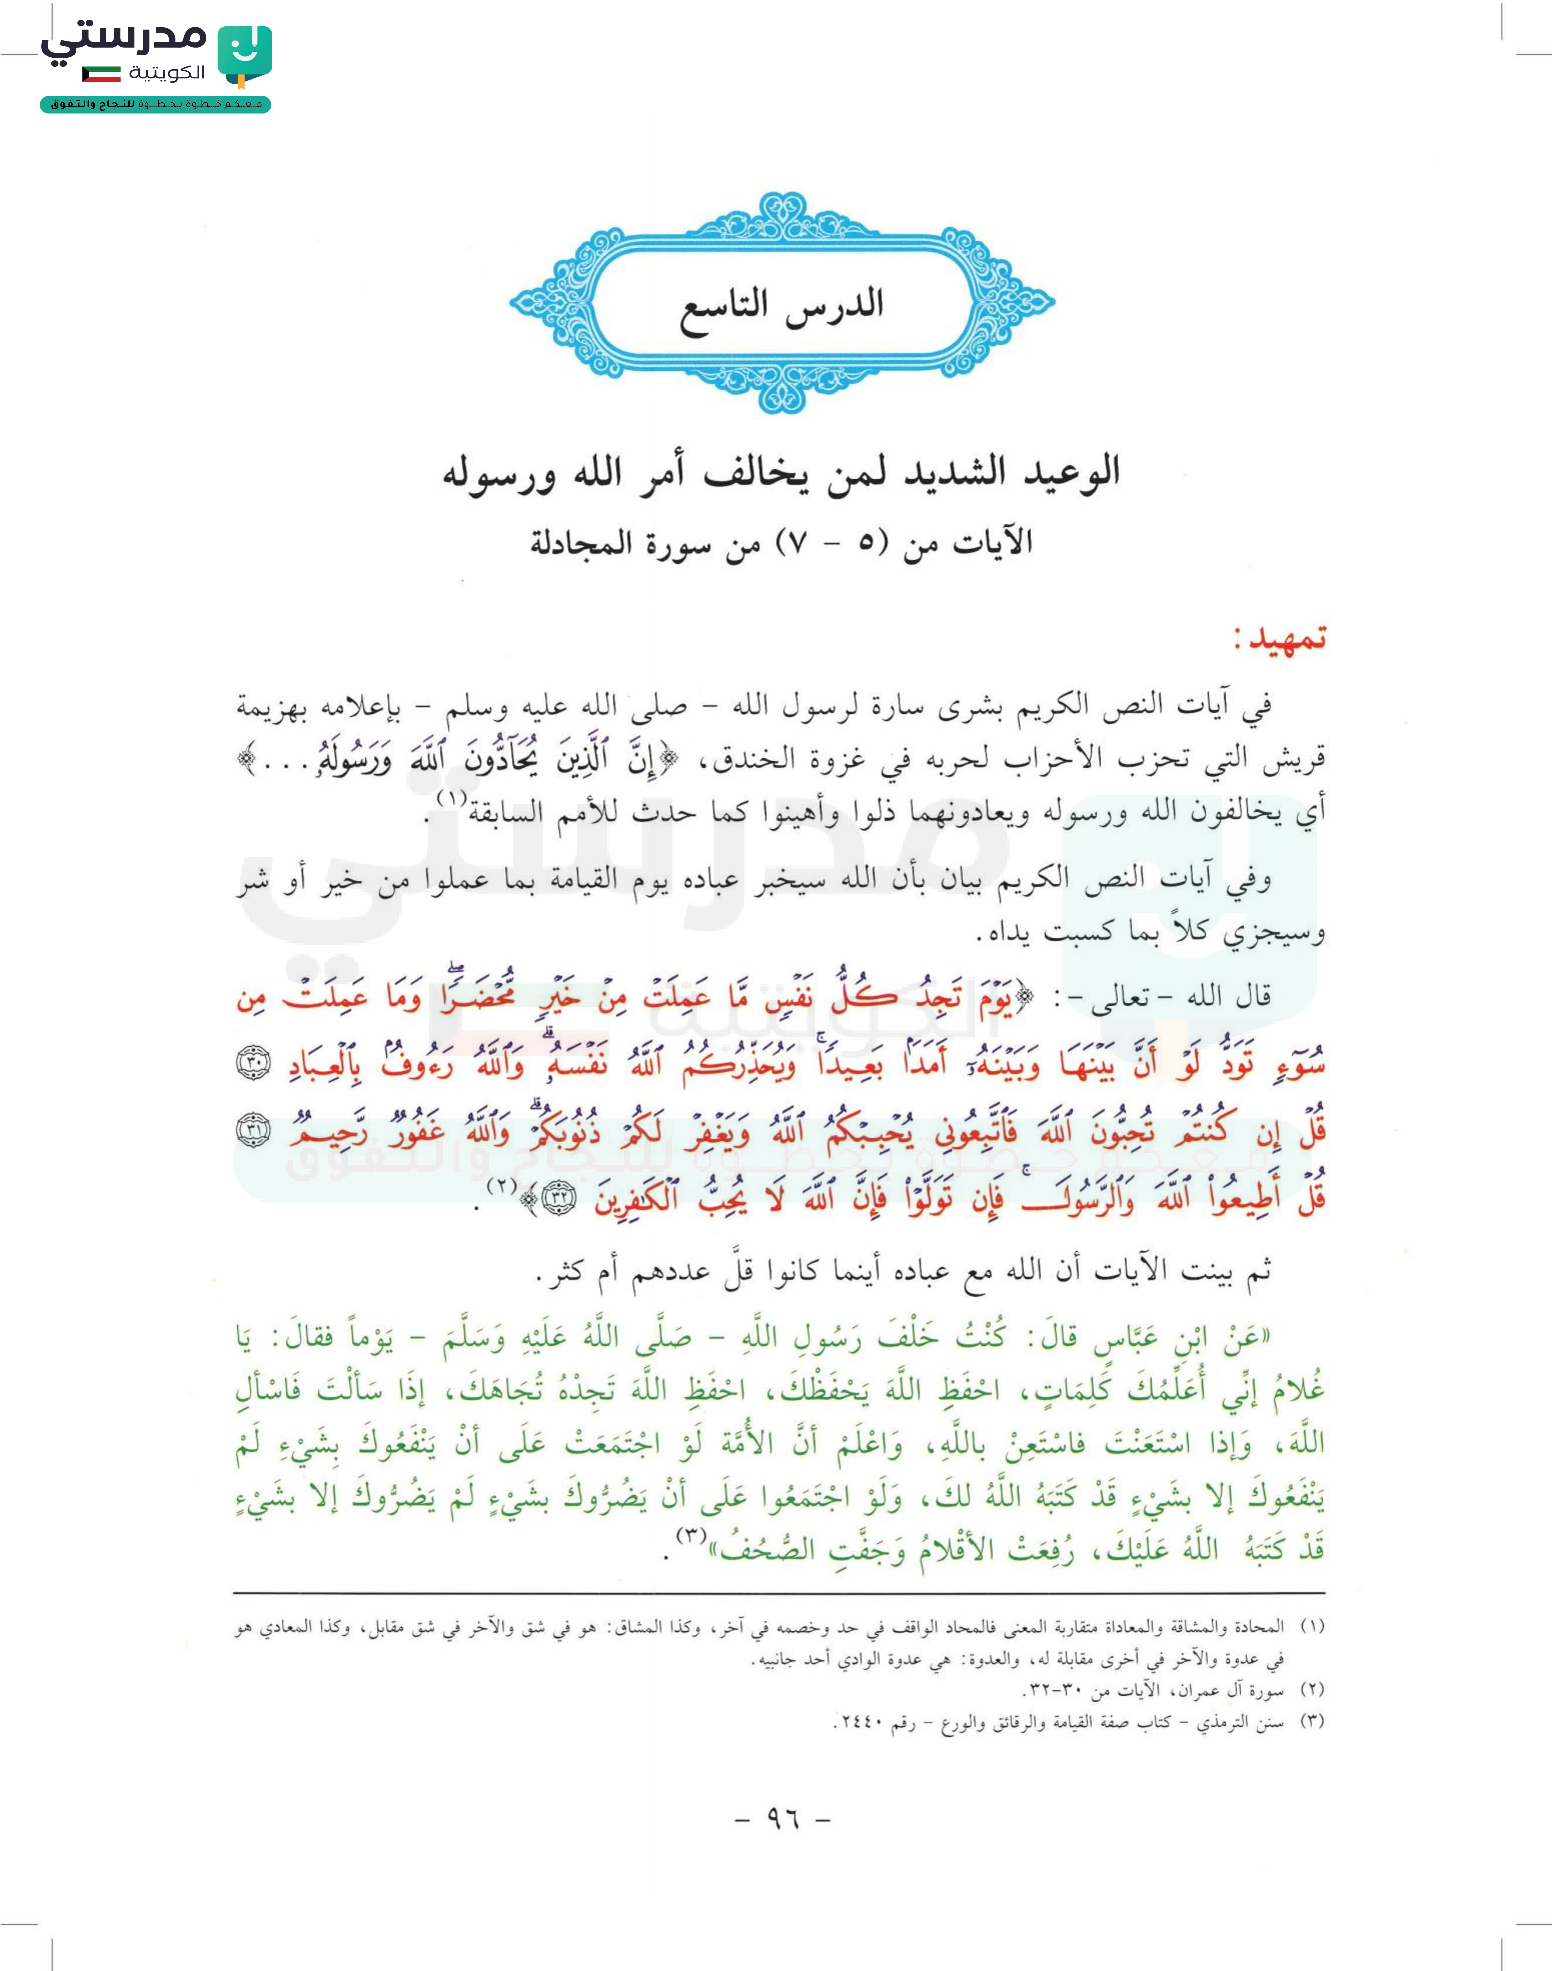 مدرستي
الكويتية
معكم خطوة بخطوة للنجاح والتفوق
الدرس التاسع
الوعيد الشديد لمن يخالف أمر الله ورسوله
الآيات من (٥ - ٧) من سورة المجادلة
تمهيد:
في آيات النص الكريم بشرى سارة لرسول الله - صلى الله عليه وسلم - بإعلامه بهزيمة
قريش التي تحزب الأحزاب لحربه في غزوة الخندق، ﴿إِنَّ ٱلَّذِينَ يُحَآدُّونَ ٱللَّهَ وَرَسُولَهُۥ...﴾
أي يخالفون الله ورسوله ويعادونهما ذلوا وأهينوا كما حدث للأمم السابقة(١).
وفي آيات النص الكريم بيان بأن الله سيخبر عباده يوم القيامة بما عملوا من خير أو شر
وسيجزي كلاً بما كسبت يداه.
قال الله -تعالى-: ﴿يَوْمَ تَجِدُ كُلُّ نَفْسٍ مَّا عَمِلَتْ مِنْ خَيْرٍ مُّحْضَرًا وَمَا عَمِلَتْ مِن
سُوٓءٍ تَوَدُّ لَوْ أَنَّ بَيْنَهَا وَبَيْنَهُۥٓ أَمَدًۢا بَعِيدًا ۚ وَيُحَذِّرُكُمُ ٱللَّهُ نَفْسَهُۥ ۗ وَٱللَّهُ رَءُوفٌۢ بِٱلْعِبَادِ ٣٠
قُلْ إِن كُنتُمْ تُحِبُّونَ ٱللَّهَ فَٱتَّبِعُونِي يُحْبِبْكُمُ ٱللَّهُ وَيَغْفِرْ لَكُمْ ذُنُوبَكُمْ ۗ وَٱللَّهُ غَفُورٌ رَّحِيمٌ ٣١
قُلْ أَطِيعُوا۟ ٱللَّهَ وَٱلرَّسُولَ ۖ فَإِن تَوَلَّوْا۟ فَإِنَّ ٱللَّهَ لَا يُحِبُّ ٱلْكَٰفِرِينَ ٣٢﴾(٢).
ثم بينت الآيات أن الله مع عباده أينما كانوا قلَّ عددهم أم كثر.
«عَنْ ابْنِ عَبَّاسٍ قالَ: كُنْتُ خَلْفَ رَسُولِ اللَّهِ - صَلَّى اللَّهُ عَلَيْهِ وَسَلَّمَ - يَوْماً فقالَ: يَا
غُلامُ إنِّي أُعَلِّمُكَ كَلِمَاتٍ، احْفَظِ اللَّهَ يَحْفَظْكَ، احْفَظِ اللَّهَ تَجِدْهُ تُجَاهَكَ، إذَا سَألْتَ فَاسْألِ
اللَّهَ، وَإذا اسْتَعَنْتَ فاسْتَعِنْ باللَّهِ، وَاعْلَمْ أنَّ الأُمَّة لَوْ اجْتَمَعَتْ عَلَى أنْ يَنْفَعُوكَ بِشَيْءٍ لَمْ
يَنْفَعُوكَ إلا بشَيْءٍ قَدْ كَتَبَهُ اللَّهُ لكَ، وَلَوْ اجْتَمَعُوا عَلَى أنْ يَضُرُّوكَ بشَيْءٍ لَمْ يَضُرُّوكَ إلا بشَيْءٍ
قَدْ كَتَبَهُ اللَّهُ عَلَيْكَ، رُفِعَتْ الأقْلامُ وَجَفَّتِ الصُّحُفُ»(٣).
(١) المحادة والمشاقة والمعاداة متقاربة المعنى فالمحاد الواقف في حد وخصمه في آخر، وكذا المشاق: هو في شق والآخر في شق مقابل، وكذا المعادي هو
في عدوة والآخر في أخرى مقابلة له، والعدوة: هي عدوة الوادي أحد جانبيه.
(٢) سورة آل عمران، الآيات من ٣٠-٣٢.
(٣) سنن الترمذي - كتاب صفة القيامة والرقائق والورع - رقم ٢٤٤٠.
- ٩٦ -